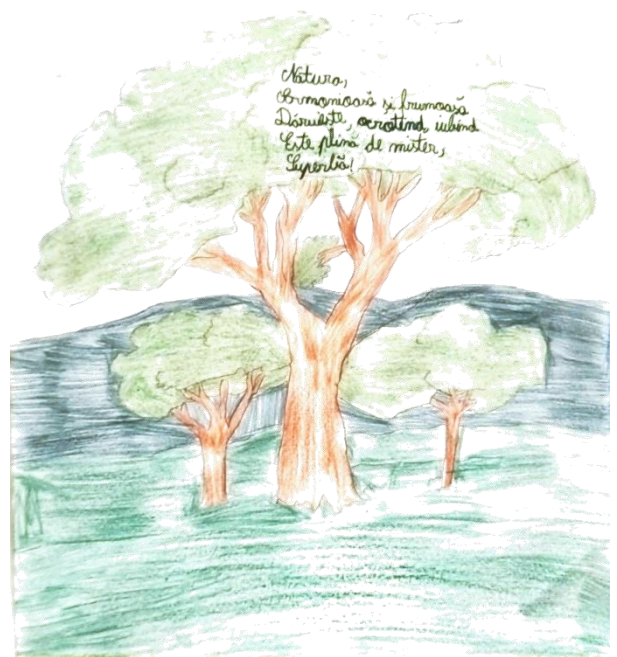 Natura,
Armonioasă și frumoasă
Dăruiește, ocrotind, iubind
Este plină de mister,
Superbă!